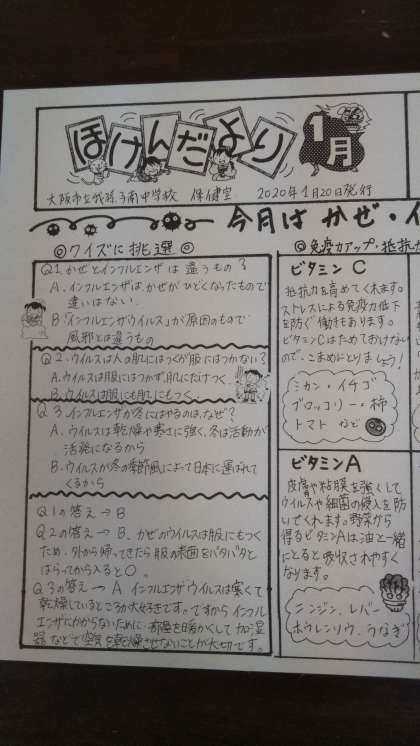 ほけんだより
1月
大阪市立我孫子南中学校 保健室 2020年1月20日発行
今月は かぜ・イ
◎クイズに挑選◎
Q1.かぜとインフルエンザは違うもの?
A.インフルエンザは、かぜがひどくなったもので
違いはない.
B.「インフルエンザウイルス」が原因のもので
風邪とは違うもの
Q2.ウイルスは人の肌にはつくが服にはつかない?
A.ウイルスは服にはつかず、肌にだけつく
B.ウイルスは服にも肌にもつく.
Q3.インフルエンザが冬にはやるのは、なぜ?
A.ウイルスは乾燥や寒さに強く、冬は活動が
活発になるから
B.ウイルスが冬の季節風によって日本に運ばれて
くるから
Q1の答え→B
Q2の答え→B、かぜのウイルスは服にもつく
ため、外から帰ってきたら服の表面をパタパタと
はらってから入ると○。
Q3の答え→A インフルエンザウイルスは寒くて
乾燥しているところが大好きです。ですからインフル
エンザにかからないために、部屋を暖かくして加湿
器などで空気を乾燥させないことが大切です。
◎免疫力アップ・抵抗力
ビタミンC
抵抗力を高めてくれます。
ストレスによる免疫力低下
を防ぐ働きもあります。
ビタミンCはためておけない
ので、こまめにとりましょう!
ミカン・イチゴ
ブロッコリー・柿
トマト など
ビタミンA
皮膚や粘膜を強くして
ウイルスや細菌の侵入を防
いでくれます。野菜から
得るビタミンAは油と一緒
にとると吸収されやすく
なります。
ニンジン、レバー
ホウレンソウ、うなぎ